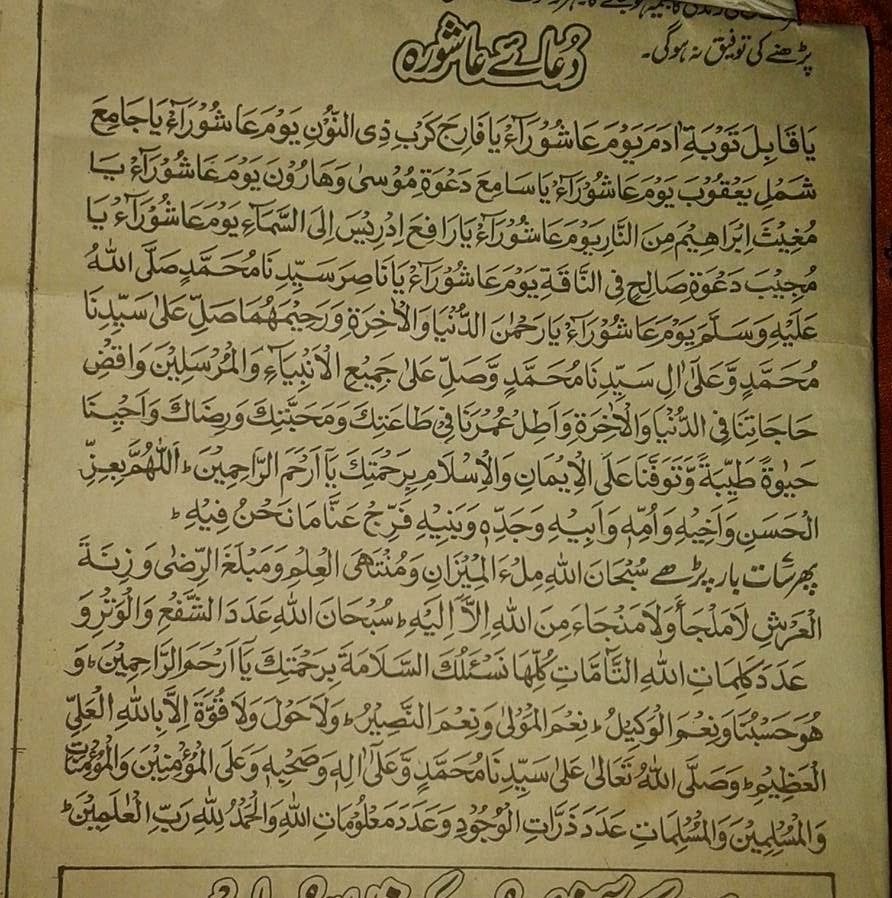 پڑھنے کی توفیق نہ ہوگی۔
دُعائے عاشورہ
يَا قَابِلَ تَوْبَةِ اٰدَمَ يَوْمَ عَاشُوْرَآءَ يَا فَارِجَ كَرْبِ ذِى النُّوْنِ يَوْمَ عَاشُوْرَآءَ يَا جَامِعَ
شَمْلِ يَعْقُوْبَ يَوْمَ عَاشُوْرَآءَ يَا سَامِعَ دَعْوَةِ مُوْسٰى وَهَارُوْنَ يَوْمَ عَاشُوْرَآءَ يَا
مُغِيْثَ اِبْرَاهِيْمَ مِنَ النَّارِ يَوْمَ عَاشُوْرَآءَ يَا رَافِعَ اِدْرِيْسَ اِلَى السَّمَآءِ يَوْمَ عَاشُوْرَآءَ يَا
مُجِيْبَ دَعْوَةِ صَالِحٍ فِى النَّاقَةِ يَوْمَ عَاشُوْرَآءَ يَا نَاصِرَ سَيِّدِنَا مُحَمَّدٍ صَلَّى اللّٰهُ
عَلَيْهِ وَسَلَّمَ يَوْمَ عَاشُوْرَآءَ يَا رَحْمٰنَ الدُّنْيَا وَالْاٰخِرَةِ وَرَحِيْمَهُمَا صَلِّ عَلٰى سَيِّدِنَا
مُحَمَّدٍ وَّعَلٰٓى اٰلِ سَيِّدِنَا مُحَمَّدٍ وَّصَلِّ عَلٰى جَمِيْعِ الْاَنْبِيَآءِ وَالْمُرْسَلِيْنَ وَاقْضِ
حَاجَاتِنَا فِى الدُّنْيَا وَالْاٰخِرَةِ وَاَطِلْ عُمْرَنَا فِىْ طَاعَتِكَ وَمَحَبَّتِكَ وَرِضَاكَ وَاَحْيِنَا
حَيٰوةً طَيِّبَةً وَّتَوَفَّنَا عَلَى الْاِيْمَانِ وَالْاِسْلَامِ بِرَحْمَتِكَ يَآ اَرْحَمَ الرَّاحِمِيْنَ ؕ اَللّٰهُمَّ بِعِزِّ
الْحَسَنِ وَاَخِيْهِ وَاُمِّهٖ وَاَبِيْهِ وَجَدِّهٖ وَبَنِيْهِ فَرِّجْ عَنَّا مَا نَحْنُ فِيْهِ ؕ
پھر سات بار پڑھے سُبْحَانَ اللّٰهِ مِلْءَ الْمِيْزَانِ وَمُنْتَهَى الْعِلْمِ وَمَبْلَغَ الرِّضٰى وَزِنَةَ
الْعَرْشِ لَا مَلْجَأَ وَلَا مَنْجَاءَ مِنَ اللّٰهِ اِلَّآ اِلَيْهِ ؕ سُبْحَانَ اللّٰهِ عَدَدَ الشَّفْعِ وَالْوَتْرِ وَ
عَدَدَ كَلِمَاتِ اللّٰهِ التَّآمَّاتِ كُلِّهَا نَسْئَلُكَ السَّلَامَةَ بِرَحْمَتِكَ يَآ اَرْحَمَ الرَّاحِمِيْنَ ؕ وَ
هُوَ حَسْبُنَا وَنِعْمَ الْوَكِيْلُ ؕ نِعْمَ الْمَوْلٰى وَنِعْمَ النَّصِيْرُ ؕ وَلَا حَوْلَ وَلَا قُوَّةَ اِلَّا بِاللّٰهِ الْعَلِىِّ
الْعَظِيْمِ ؕ وَصَلَّى اللّٰهُ تَعَالٰى عَلٰى سَيِّدِنَا مُحَمَّدٍ وَّعَلٰٓى اٰلِهٖ وَصَحْبِهٖ وَعَلَى الْمُؤْمِنِيْنَ وَالْمُؤْمِنَاتِ
وَالْمُسْلِمِيْنَ وَالْمُسْلِمَاتِ عَدَدَ ذَرَّاتِ الْوُجُوْدِ وَعَدَدَ مَعْلُوْمَاتِ اللّٰهِ وَالْحَمْدُ لِلّٰهِ رَبِّ الْعٰلَمِيْنَ ؕ